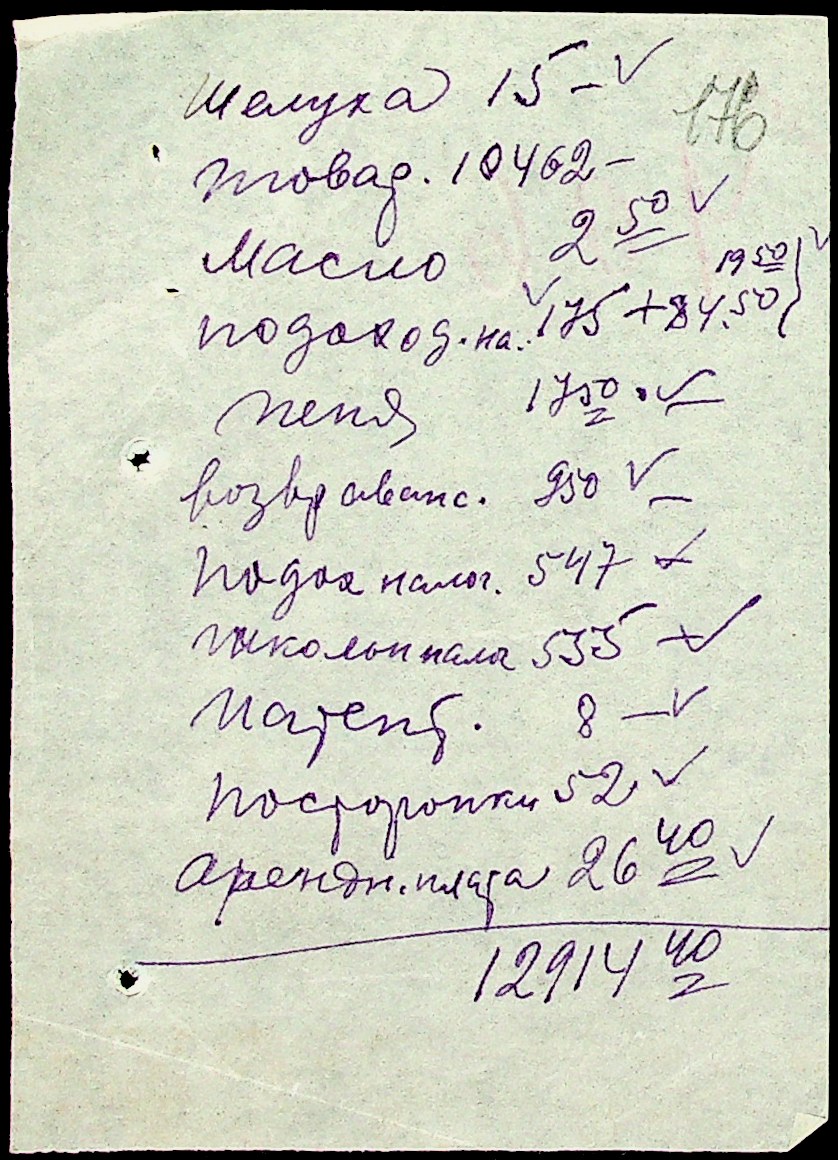 176
Шелуха 15 –
товар. 10462 –
Масло 2 50
19 50
подоход. на. 175 + 84.50
пеня 17 50
возвр аванс. 950
Подох налог. 547
школьн нала 535
Патент. 8 –
Посторонки 52
Арендн. плата 26 40
12914 40